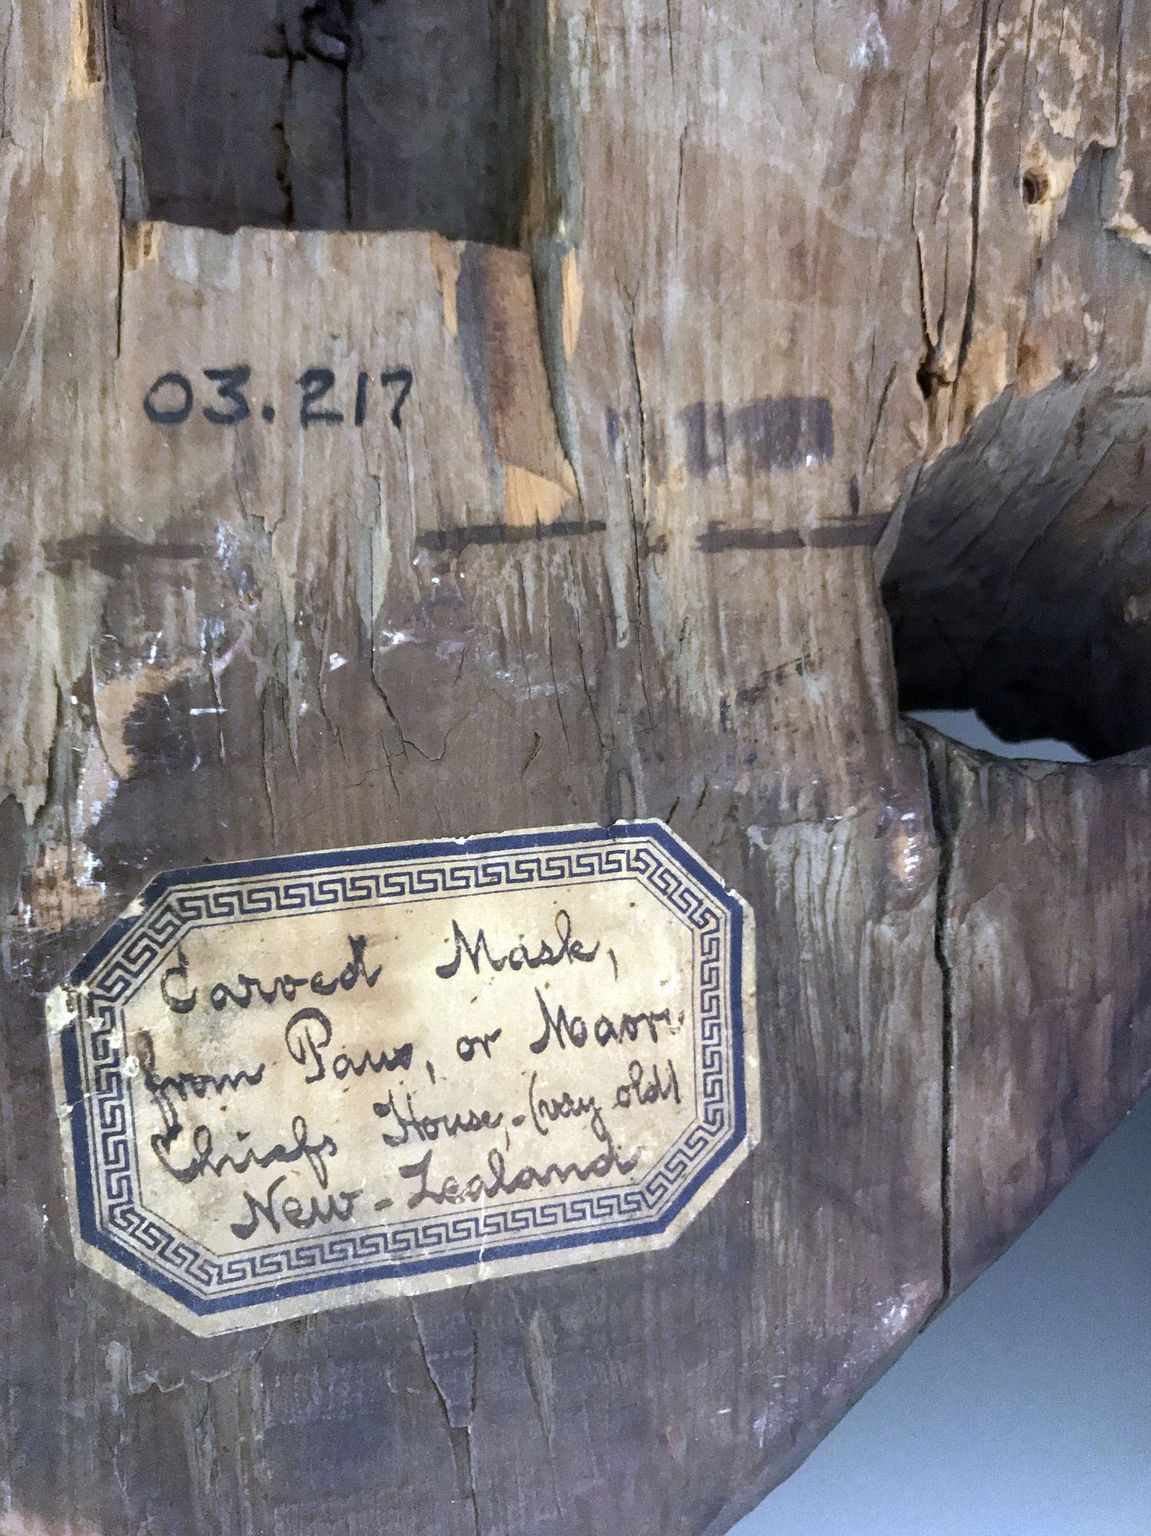 03.217
Carved Mask,
from Paus, or Maori
Chiefs House,-(very old)
New-Zealand